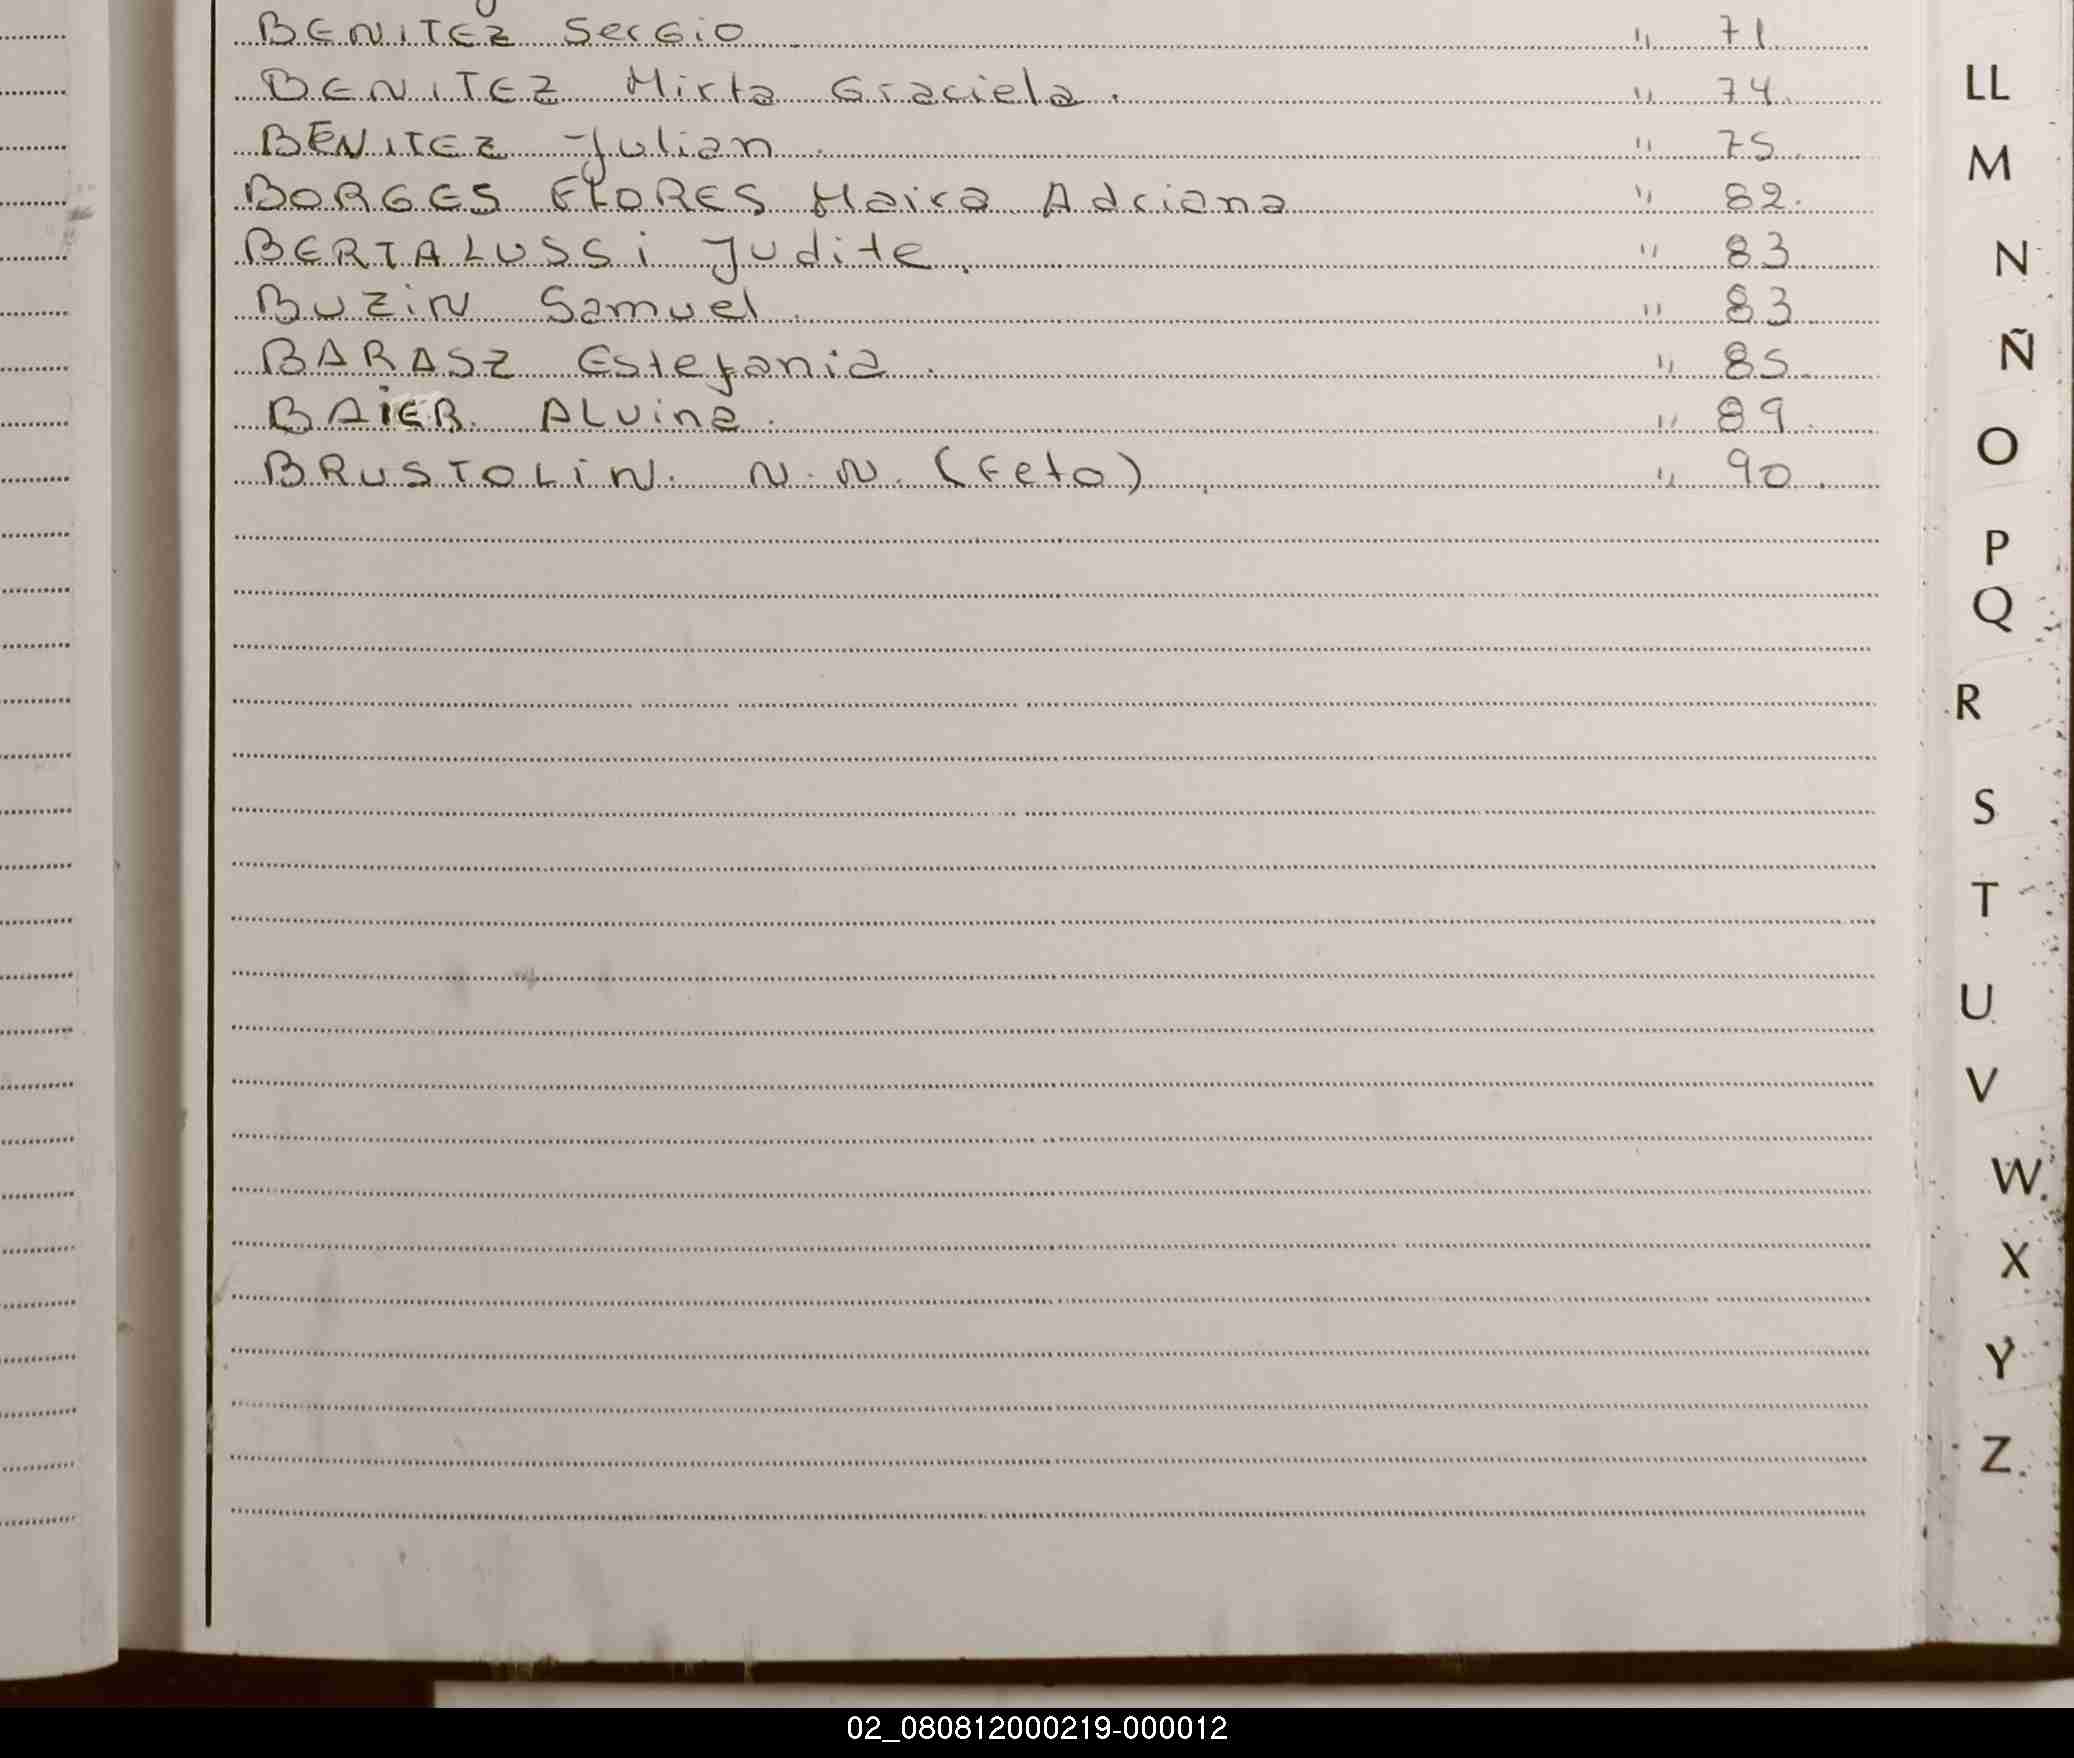 BENITEZ Sergio " 71
BENITEZ Mirta Graciela. " 74.
BENITEZ Julian. " 75.
BORGES FLORES Maira Adriana " 82.
BERTALUSSi Judite. " 83
BUZiN Samuel. " 83
BARASZ Estefania. " 85.
BAiER. ALvina. " 89.
BRUSTOLiN. N.N. (Feto). " 90.
LL
M
N
Ñ
O
P
Q
R
S
T
U
V
W
X
Y
Z
02_080812000219-000012